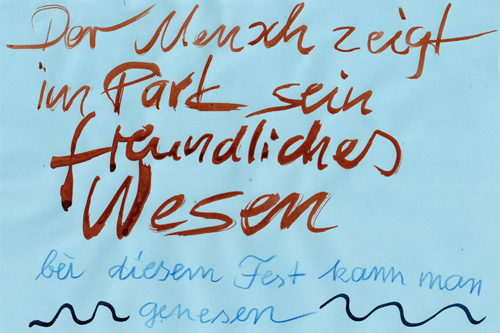 Der Mensch zeigt
im Park sein
freundliches
Wesen
bei diesem Fest kann man
genesen